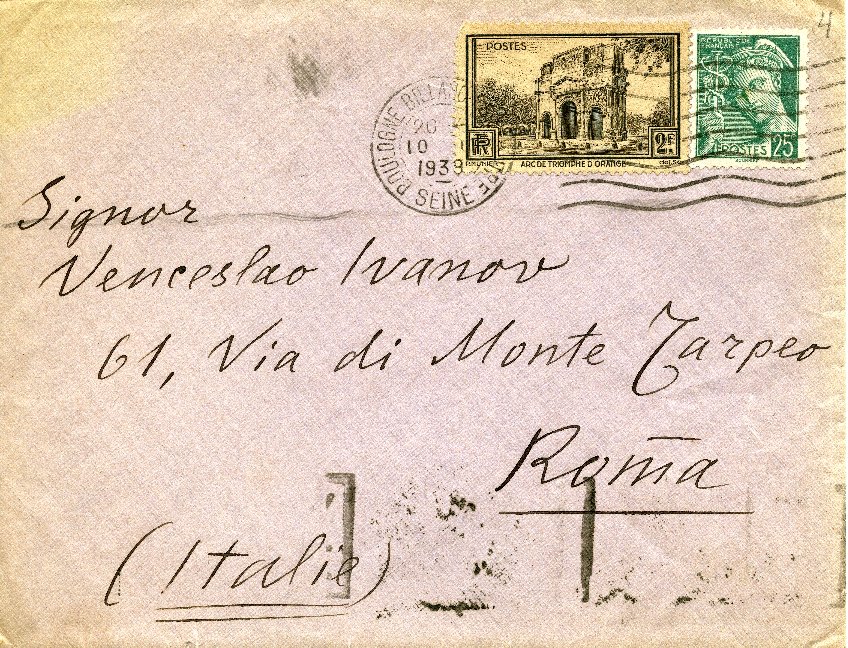 4
POSTES
RF
2F
ARC DE TRIOMPHE D'ORANGE
REPUBLIQUE
FRANÇAISE
POSTES 25
BOULOGNE BILLANC
20
10
1939
SEINE
Signor
Venceslao Ivanov
61, Via di Monte Tarpeo
Roma
(Italie)